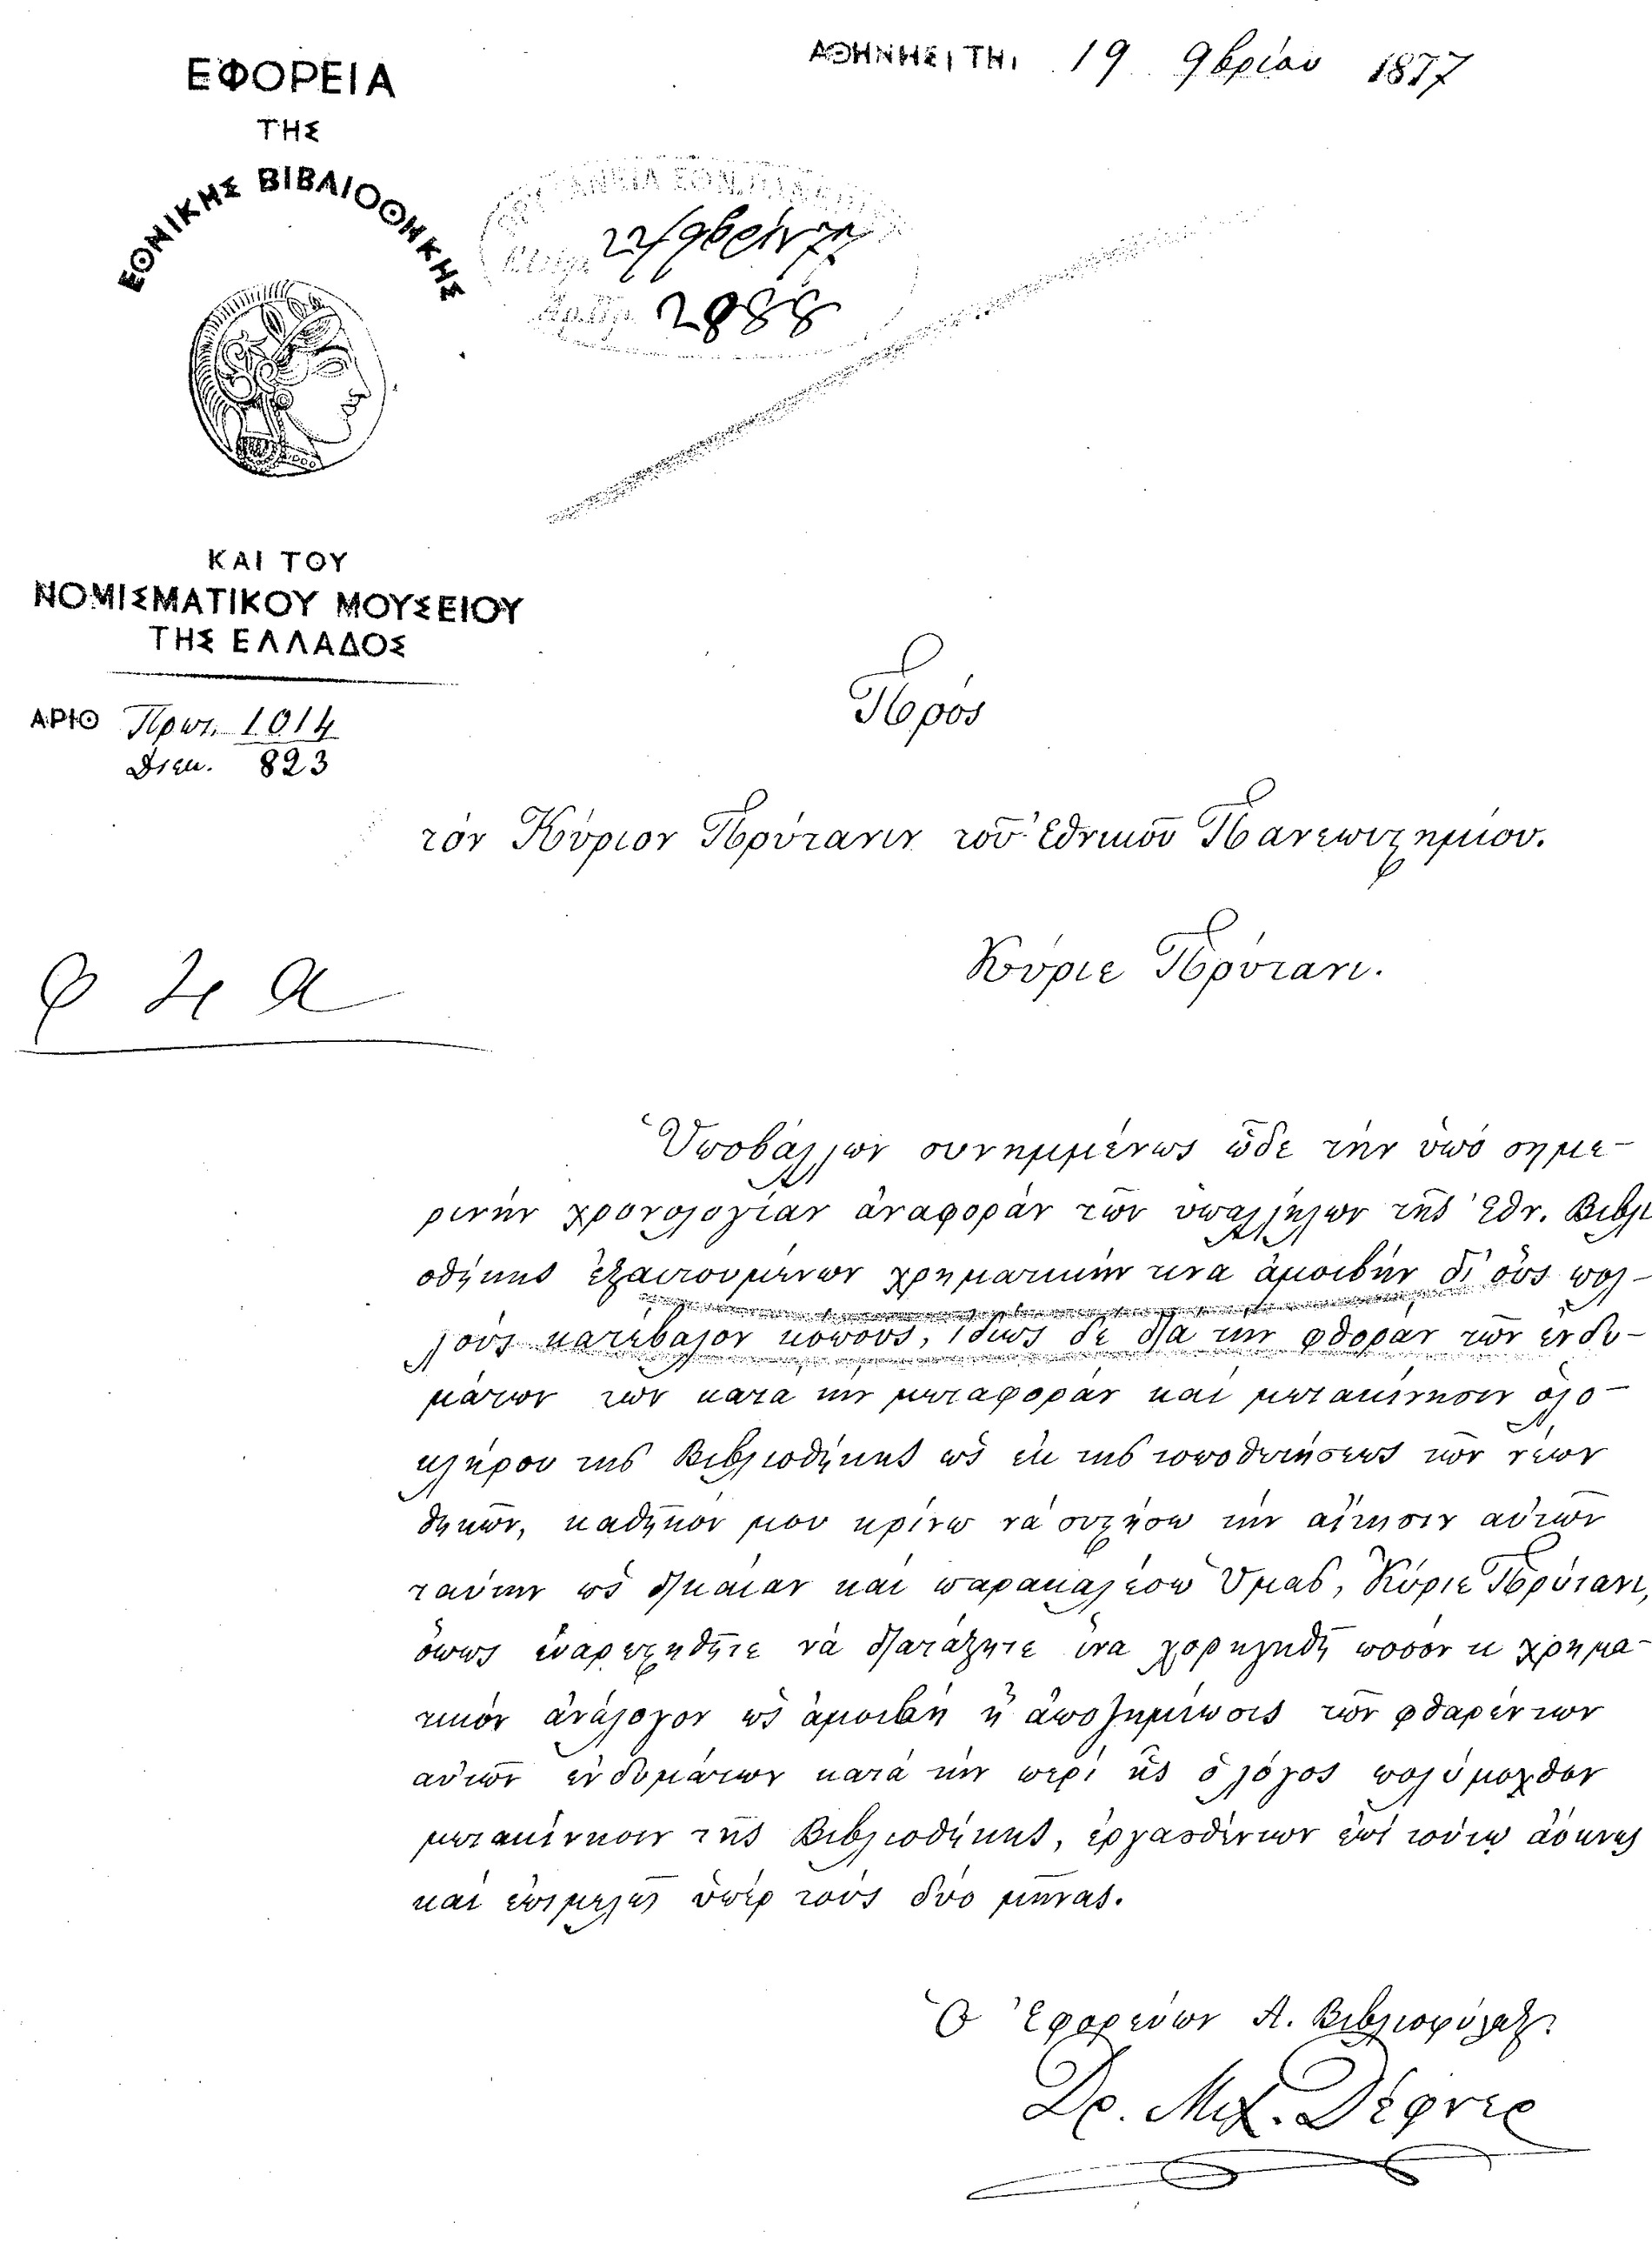 ΕΦΟΡΕΙΑ
ΤΗΣ
ΕΘΝΙΚΗΣ ΒΙΒΛΙΟΘΗΚΗΣ
ΚΑΙ ΤΟΥ
ΝΟΜΙΣΜΑΤΙΚΟΥ ΜΟΥΣΕΙΟΥ
ΤΗΣ ΕΛΛΑΔΟΣ
ΑΡΙΘ Πρωτ. 1014
Διεκ. 823
ΑΘΗΝΗΣΙ ΤΗΙ 19 9βρίου 1877
ΠΡΥΤΑΝΕΙΑ ΕΘΝ. ΠΑΝΕΠΙΣΤ
22/9βρίου 77
Ἀριθμ. 2888
Πρός
τόν Κύριον Πρύτανιν τοῦ Ἐθνικοῦ Πανεπιστημίου.
Κύριε Πρύτανι.
Ὑποβάλλων συνημμένως ὧδε τήν ὑπό σημε-
ρινήν χρονολογίαν ἀναφοράν τῶν ὑπαλλήλων τῆς Ἐθν. Βιβλι
οθήκης ἐξαιτουμένων χρηματικήν τινα ἀμοιβήν δι' οὕς πολ-
λούς κατέβαλον κόπους, ἰδίως δέ διά τήν φθοράν τῶν ἐνδυ-
μάτων των κατά τήν μεταφοράν καί μετακίνησιν ὁλο-
κλήρου τῆς Βιβλιοθήκης ὡς ἐκ τῆς τοποθετήσεως τῶν νέων
θηκῶν, καθῆκόν μου κρίνω νά συστήσω τήν αἴτησιν αὐτῶν
ταύτην ὡς δικαίαν καί παρακαλέσω Ὑμᾶς, Κύριε Πρύτανι,
ὅπως εὐαρεστηθῆτε νά διατάξητε ἵνα χορηγηθῇ ποσόν τι χρημα-
τικόν ἀνάλογον ὡς ἀμοιβή ἤ ἀποζημίωσις τῶν φθαρέντων
αὐτῶν ἐνδυμάτων κατά τήν περί ἧς ὁ λόγος πολύμοχθον
μετακίνησιν τῆς Βιβλιοθήκης, ἐργασθέντων ἐπί τούτῳ ἀόκνως
καί ἐπιμελῶς ὑπέρ τούς δύο μῆνας.
Ὁ Ἐφορεύων Α. Βιβλιοφύλαξ.
Δρ. Μιχ. Δέφνερ